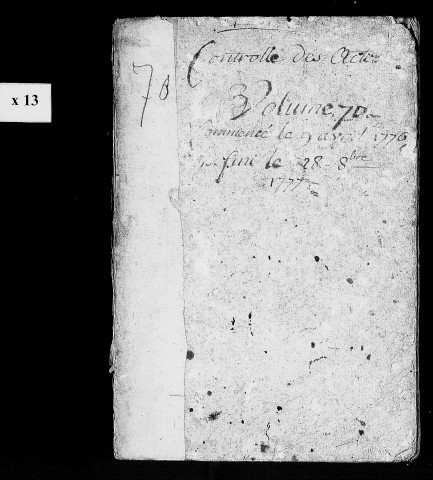 x 13
70
Controlle des Actes
Volume 70
Commencé le 9 avril 1776
fini le 28 8bre
1777